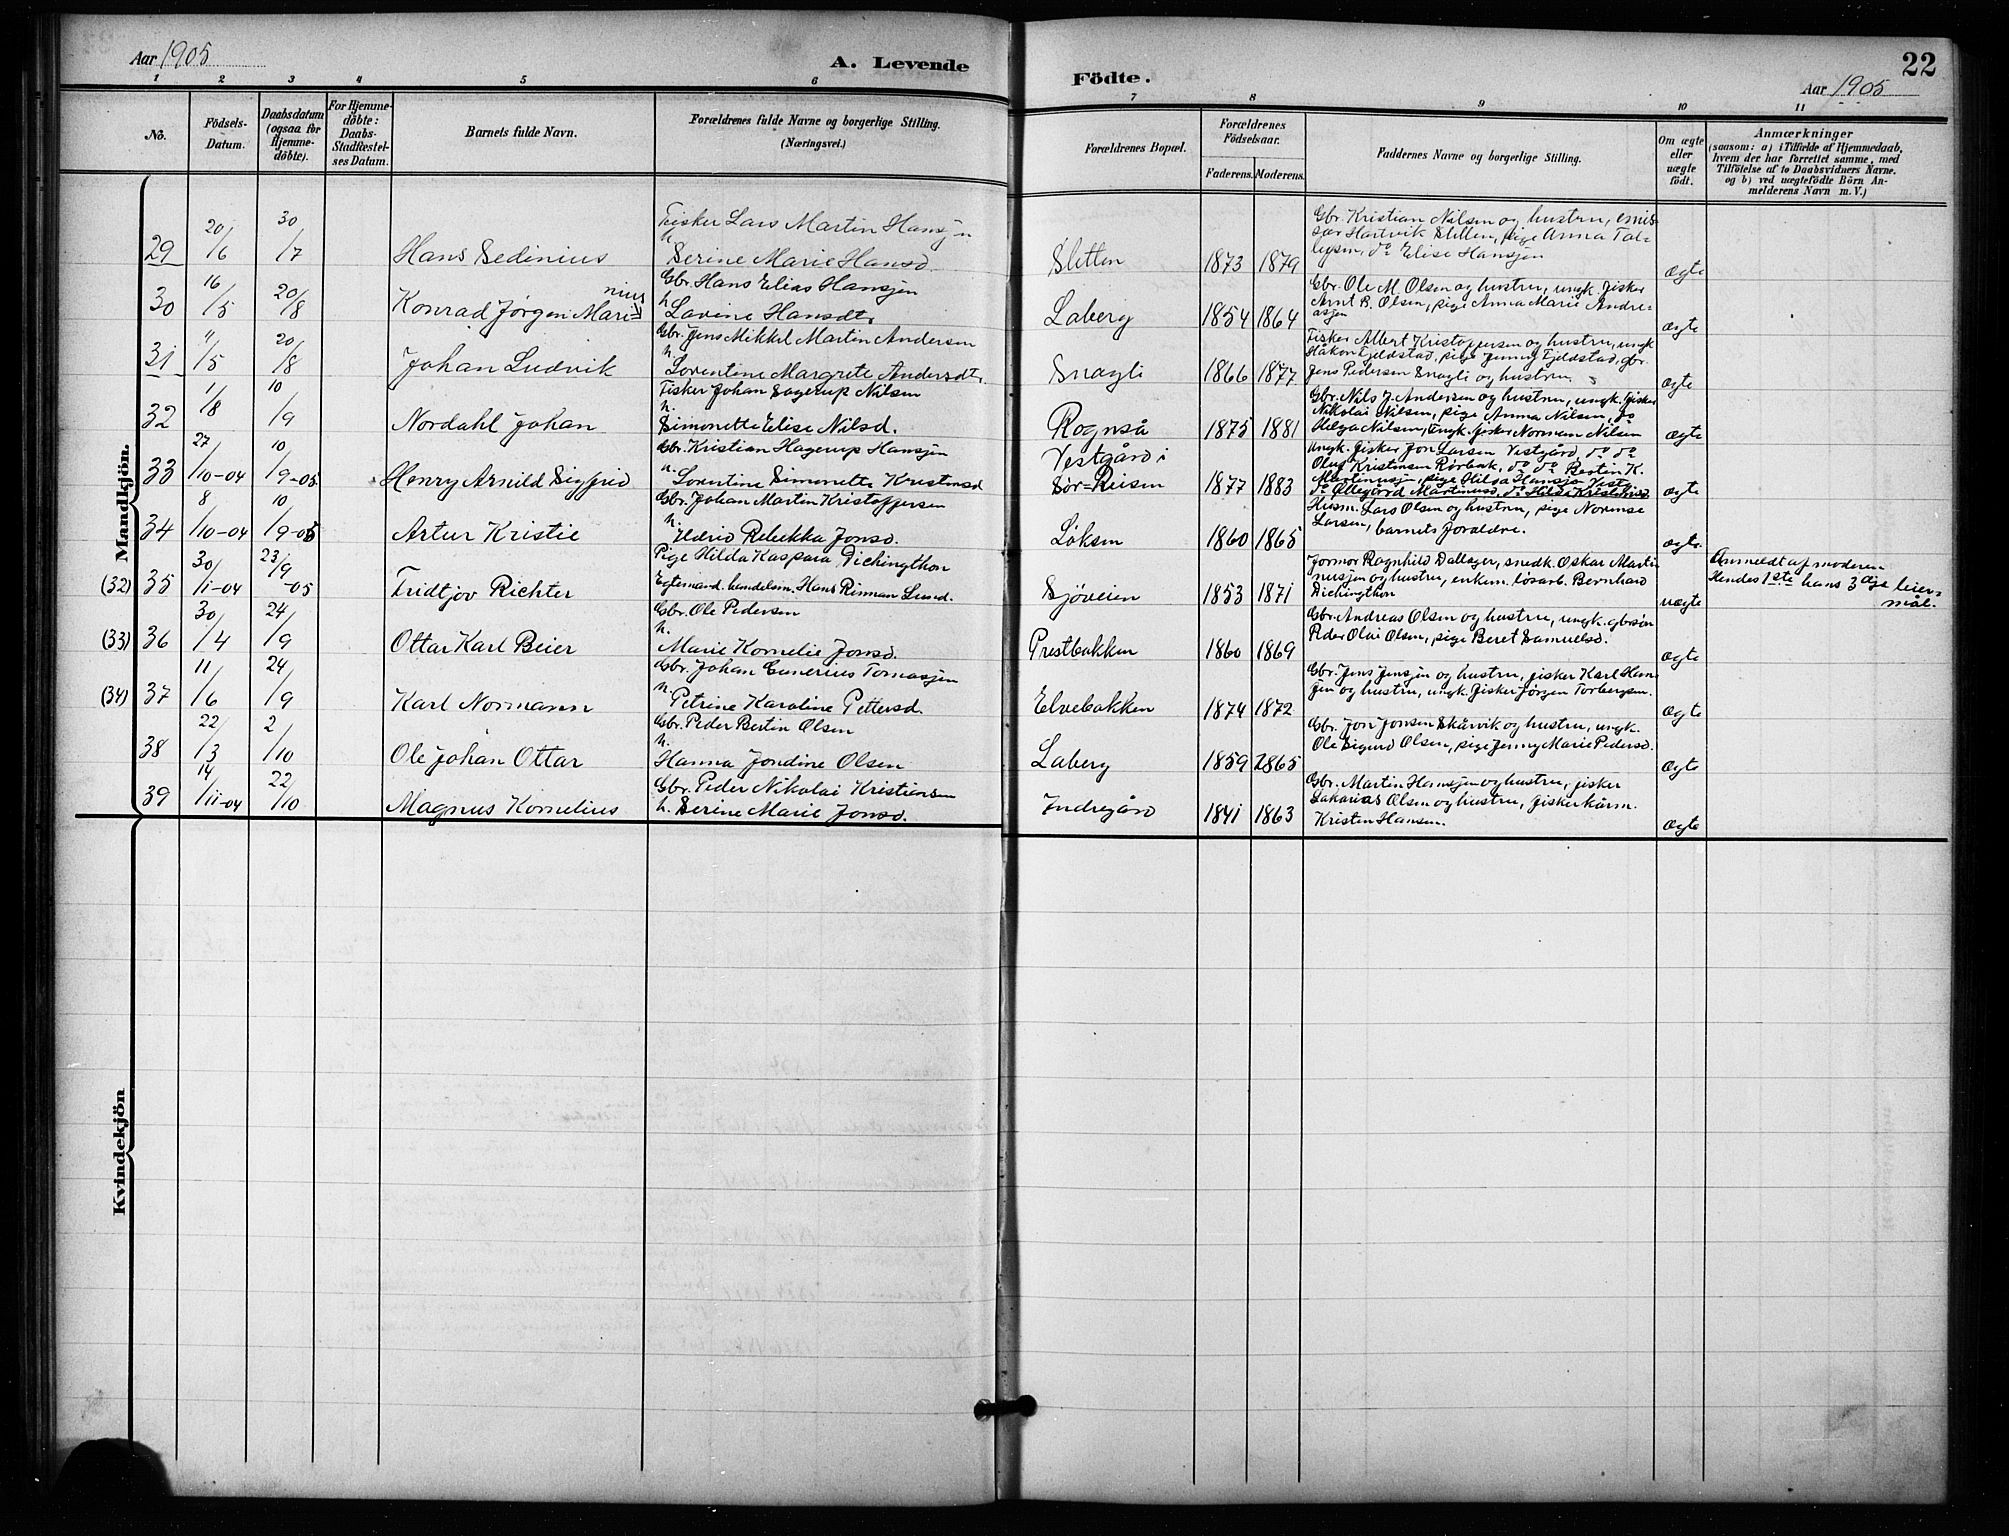 Aar 1905
A. Levende
Födte.
22
Aar 1905
1 2 3 4 5 6 7 8 9 10 11
No.
Födsels-
Datum.
Daabsdatum
(ogsaa for
Hjemme-
döbte).
For Hjemme-
döbte:
Daabs-
Stadfæstel-
ses Datum.
Barnets fulde Navn.
Forældrenes fulde Navne og borgerlige Stilling.
(Næringsvei.)
Forældrenes Bopæl.
Forældrenes
Födselsaar.
Faderens. Moderens.
Faddernes Navne og borgerlige Stilling.
Om ægte
eller
uægte
födt.
Anmærkninger
(saasom: a) i Tilfælde af Hjemmedaab,
hvem der har forrettet samme, med
Tilföielse af to Daabsvidners Navne.
og b) ved uægtefödte Börn An-
melderens Navn m. V.)
Mandkjön.
29 20/6 30/7 Hans Sedinius
Fisker Lars Martin Hansen
h.
Serine Marie Hansd.
Sletten 1873 1879
Gbr. Kristian Nilsen og hustru, emis-
sær Hartvik Sletten, pige Anna Tol-
lefsen, do Elise Hansen
ægte
30 16/5 20/8 Konrad Jørgen Marinius
Gbr. Hans Elias Hansen
h.
Lovine Hansdtr
Laberg 1854 1864
Gbr. Ole M. Olsen og hustru, ungk. fisker
Arnt B. Olsen, pige Anna Marie Andre-
asen
ægte
31 11/5 20/8 Johan Ludvik
Gbr. Jens Mikkel Martin Andersen
h.
Lorentine Margrete Andersdtr.
Snagli 1866 1877
Fisker Albert Kristoffersen og hustru, ungk
Håkon Fjeldstad, pige Jenny Fjeldstad, gbr.
Jens Pedersen Snagli og hustru
ægte
32 1/8 10/9 Nordahl Johan
Fisker Johan Hagerup Nilsen
h.
Simonette Elise Nilsd.
Rognså 1875 1881
Gbr. Nils J. Andersen og hustru, ungk. fisker
Nikolai Nilsen, pige Anna Nilsen, do
Helga Nilsen, ungk. fisker Norman Nilsen
ægte
33 27/10-04 10/9-05 Henry Arnild Sigfrid
Gbr. Kristian Hagerup Hansen
h.
Lorentine Simonette Kristensd
Vestgård i
Sør=Reisen 1877 1883
Ungk. fisker Jon Larsen Vestgård, do do
Oluf Kristensen Rørbak, do do Bertin K.
Martinusen, pige Hilda Hansen Vestg.
do Ollegård Martinusd. do Hilda Kristensd.
ægte
34 8/10-04 10/9-05 Artur Kristie
Gbr. Johan Martin Kristoffersen
h.
Hedvid Rebekka Jonsd.
Løksen 1860 1865
Husm. Lars Olsen og hustru, pige Norense
Larsen, barnets forældre.
ægte
(32) 35 30/11-04 23/9-05 Fridtjov Richter
Pige Hilda Kaspara Dichingthon
Egtemand. handelsm. Hans Rinnan Lund.
Sjöveien 1853 1871
Jormor Ragnhild Dallager, snedk. Oskar Marti
nusen og hustru, enkem. løsarb. Bernhard
Dichingthon
uægte
Anmeldt af moderen
Hendes 1ste hans 3die leier-
mål.
(33) 36 30/4 24/9 Ottar Karl Beier
Gbr. Ole Pedersen
h.
Marie Kornelie Jonsd.
Prestbakken 1860 1869
Gbr. Andreas Olsen og hustru, ungk. gbrsøn
Peder Olai Olsen, pige Beret Samuelsd.
ægte
(34) 37 11/6 24/9 Karl Normann
Gbr. Johan Gunerius Tomasen
h.
Petrine Karoline Pettersd.
Elvebakken 1874 1872
Gbr. Jens Jensen og hustru, fisker Karl Han
sen og hustru, ungk. fisker Jørgen Torbergsen.
ægte
38 22/3 2/10 Ole Johan Ottar
Gbr. Peder Bertin Olsen
h.
Hanna Jondine Olsen
Laberg 1859 1865
Gbr. Jon Jonsen Skårvik og hustru, ungk.
Ole Sigurd Olsen, pige Jenny Marie Pedersd.
ægte
39 14/11-04 22/10 Magnus Kornelius
Gbr. Peder Nikolai Kristiansen
h. Serine Marie Jonsd.
Indregård 1841 1863
Gbr. Martin Hansen og hustru, fisker
Sakarias Olsen og hustru, fisker kårm.
Kristen Hansen.
ægte
Kvindekjön